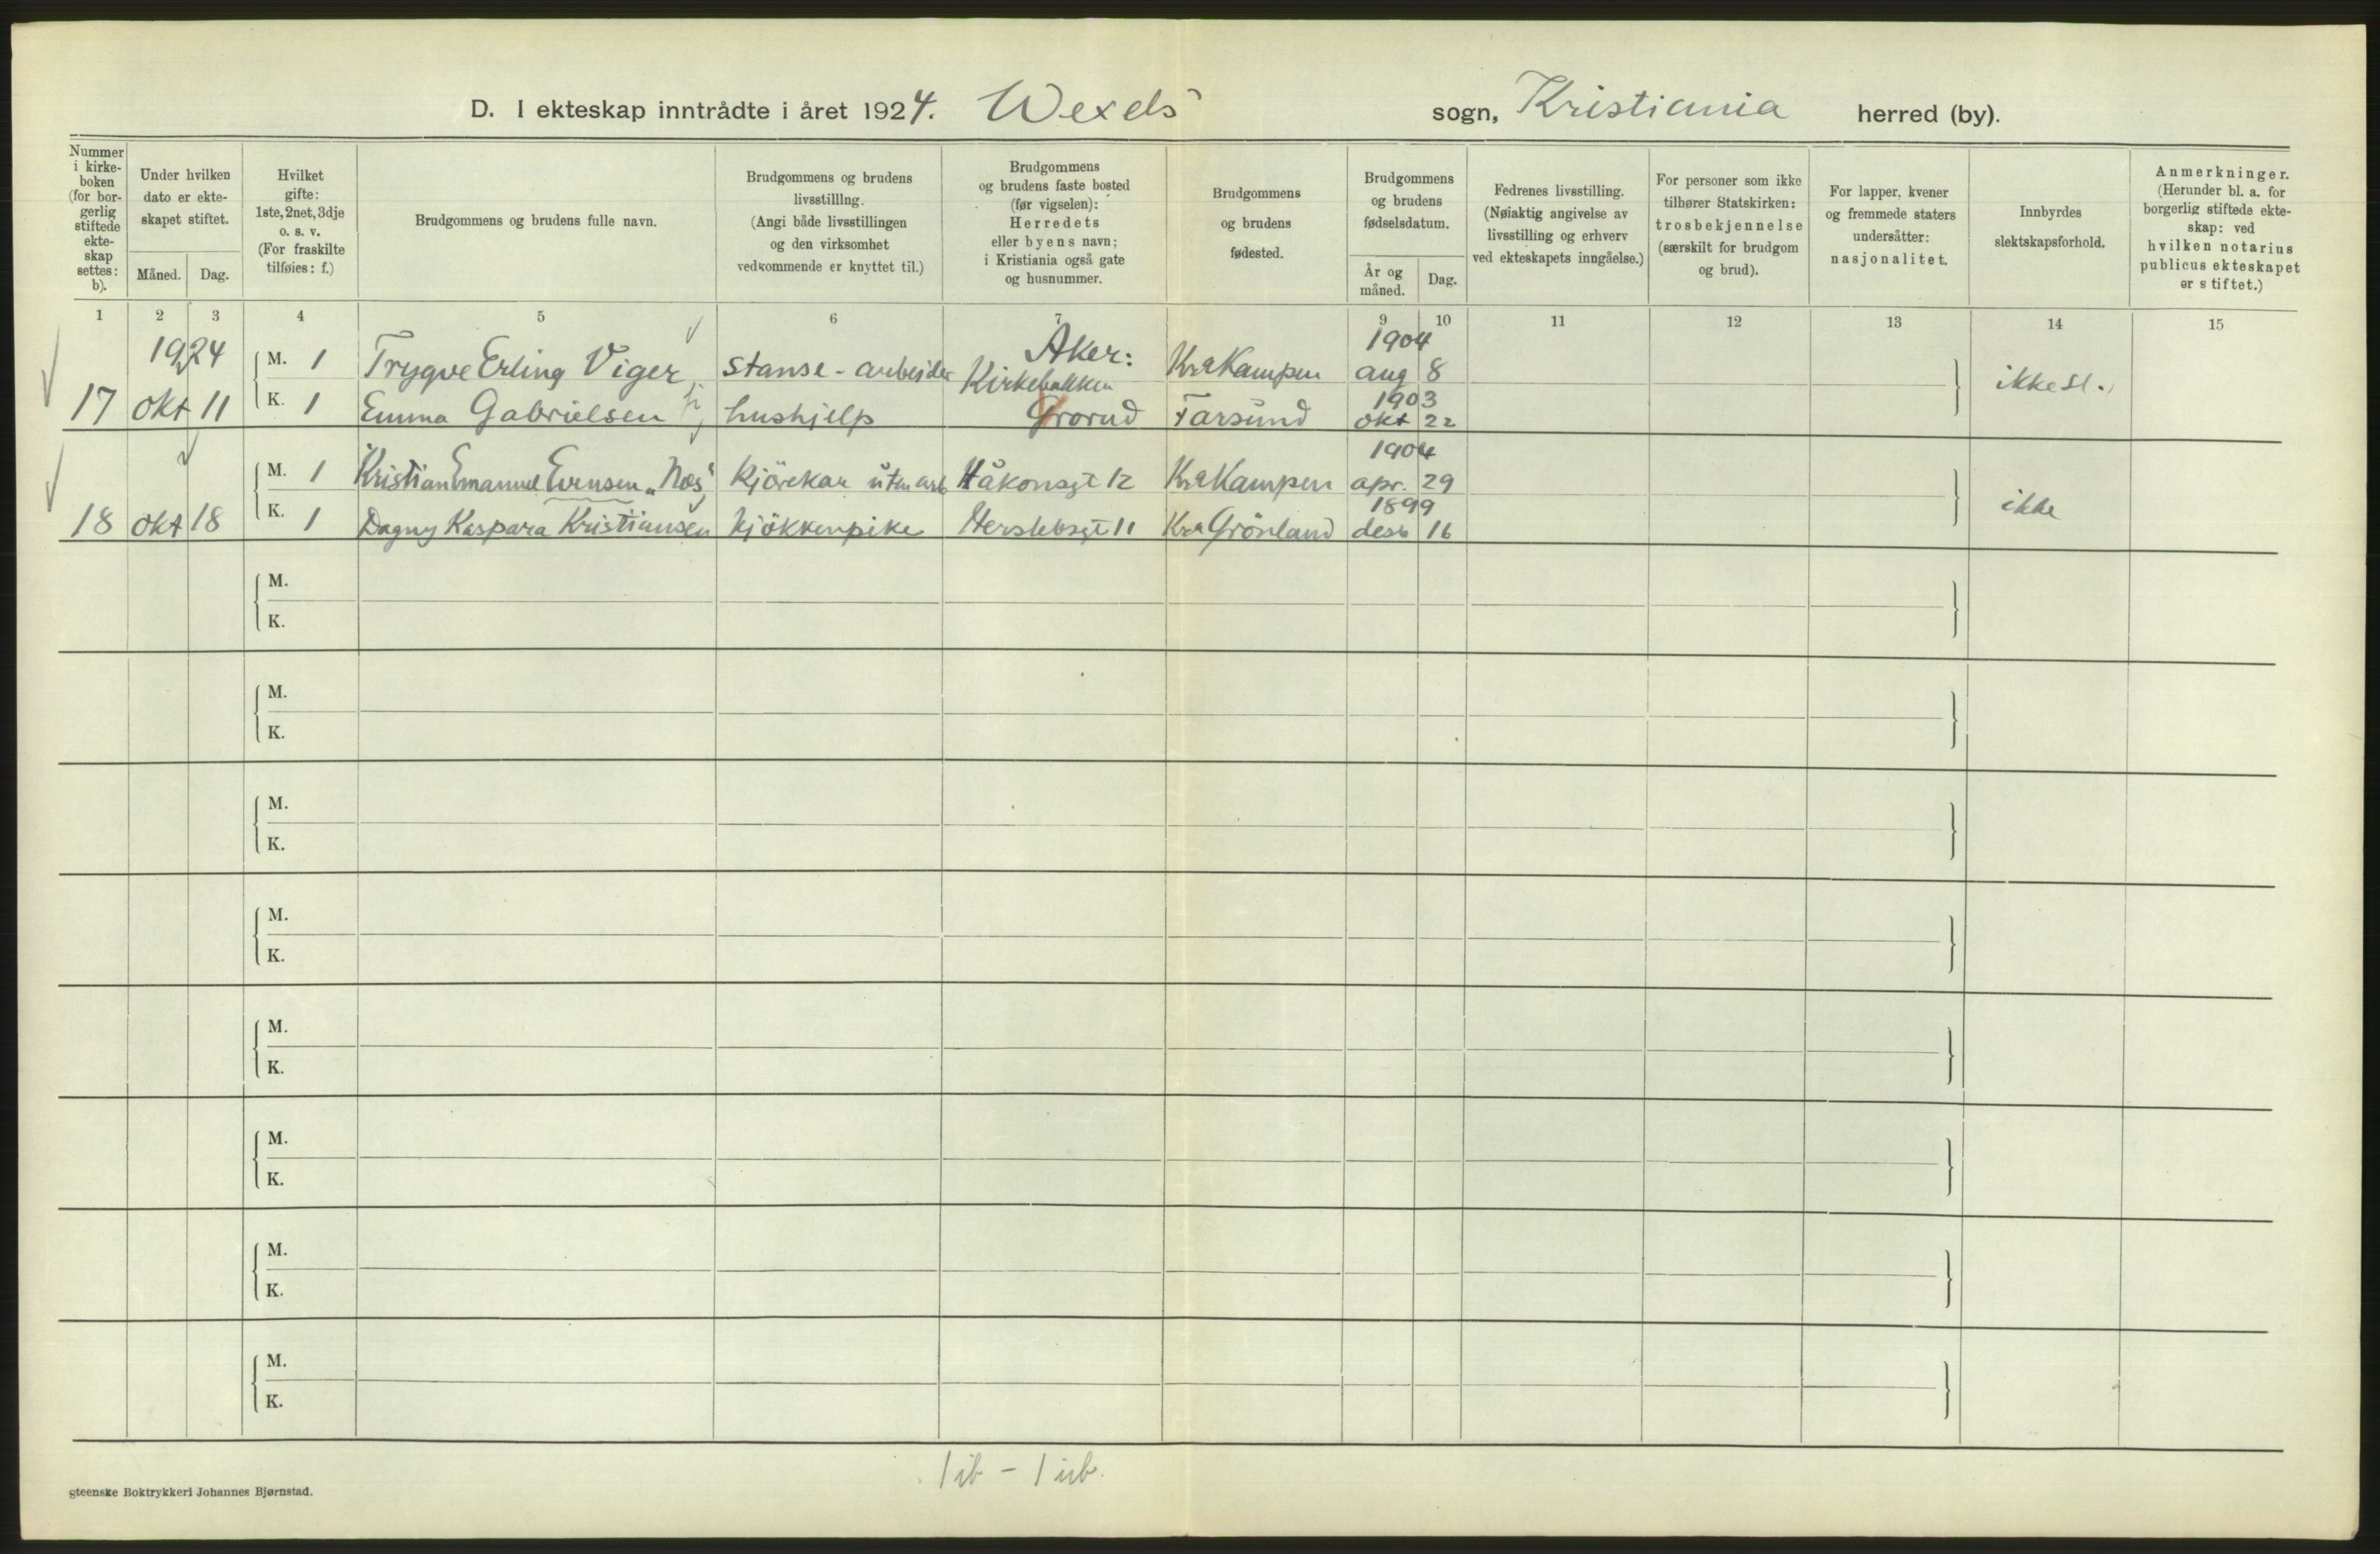 D. I ekteskap inntrådte i året 1924. Wexels sogn, Kristiania herred (by).
Nummer i kirke-boken (for bor-gerlig stiftede ekte-skap settes: b).
Under hvilken dato er ekte-skapet stiftet.
Måned. Dag.
Hvilket gifte: 1ste, 2net, 3dje o. s. v. (For fraskilte tilføies: f.)
Brudgommens og brudens fulle navn.
Brudgommens og brudens livsstilllng. (Angi både livsstillingen og den virksomhet vedkommende er knyttet til.)
Brudgommens og brudens faste bosted (før vigselen): Herredets eller byens navn; i Kristiania også gate og husnummer.
Brudgommens og brudens fødested.
Brudgommens og brudens fødselsdatum.
År og måned. Dag.
Fedrenes livsstilling. (Nøiaktig angivelse av livsstilling og erhverv ved ekteskapets inngåelse.)
For personer som ikke tilhører Statskirken: trosbekjennelse (særskilt for brudgom og brud).
For lapper, kvener og fremmede staters undersåtter: nasjonalitet.
Innbyrdes slektskapsforhold.
Anmerkninger. (Herunder bl. a. for borgerlig stiftede ekte-skap: ved hvilken notarius publicus ekteskapet er stiftet.)
1 2 3 4 5 6 7 9 10 11 12 13 14 15
1924 M. 1 Trygve Erling Viger, stanse-arbeider Aker: Kirkebakken Kra Kampen 1904 aug 8 ikke sl.
17 okt 11 K. 1 Emma Gabrielsen hushjelp Grorud Farsund 1903 okt 22
M. 1 Kristian Emanuel Evensen „Næs“ kjörekar uten arb Håkonsgt 12 Kra Kampen 1904 apr. 29 ikke
18 okt 18 K. 1 Dagny Kaspara Kristiansen kjökkenpike Herslebsgt 11 Kra Grönland 1899 des 16
M.
K.
M.
K.
M.
K.
M.
K.
M.
K.
M.
K.
M.
K.
M.
K.
1 ib - 1 ub.
gteenske Boktrykkeri Johannes Bjørnstad.